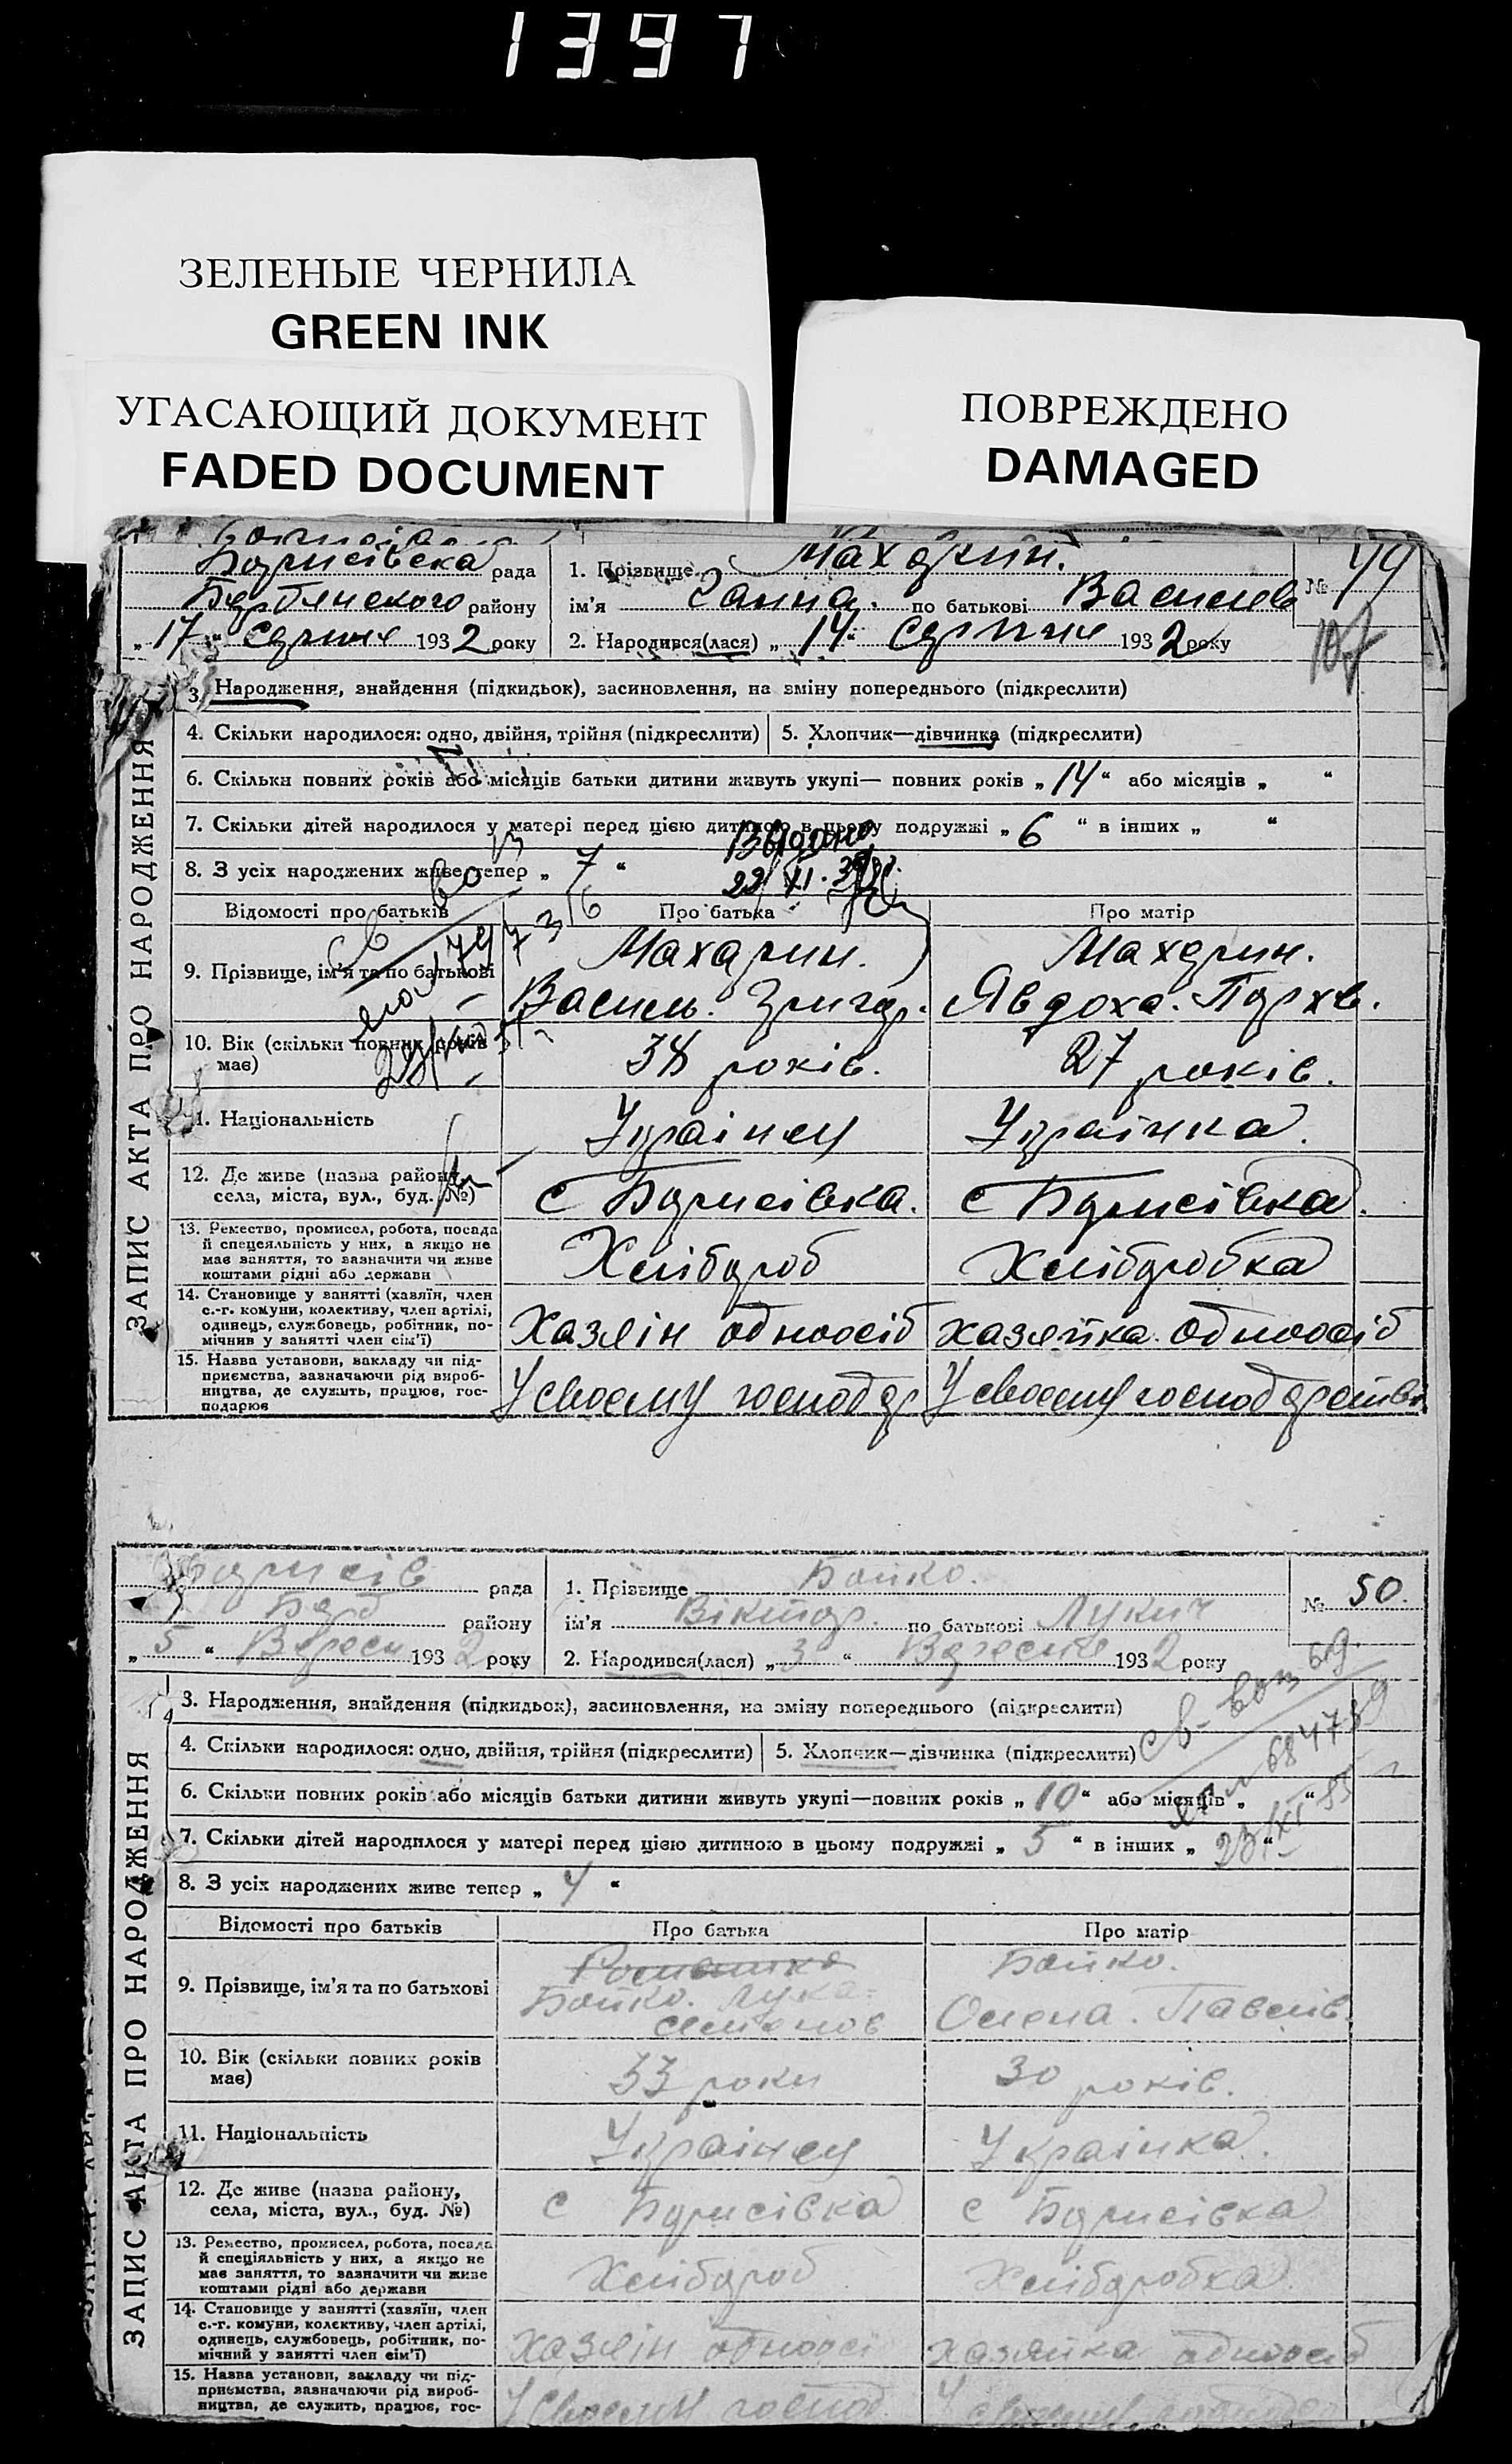 1397
ЗЕЛЕНЫЕ ЧЕРНИЛА
GREEN INK
УГАСАЮЩИЙ ДОКУМЕНТ
FADED DOCUMENT
ПОВРЕЖДЕНО
DAMAGED
Борисівска рада
Бердянского району
„ 17 “ Серпня 1932 року
1. Прізвище Махорин.
ім'я Ганна. по батькові Василев
2. Народився(лася) „ 14 “ Серпня 1932 року
№ 49
ЗАПИС АКТА ПРО НАРОДЖЕННЯ
3. Народження, знайдення (підкидьок), засиновлення, на зміну попереднього (підкреслити)
4. Скільки народилося: одно, двійня, трійня (підкреслити) 5. Хлопчик—дівчинка (підкреслити)
6. Скільки повних років або місяців батьки дитини живуть укупі— повних років „ 14 “ або місяців „ “
7. Скільки дітей народилося у матері перед цією дитиною в цьому подружжі „ 6 “ в інших „ “
8. З усіх народжених живе тепер „ 7 “
Відомості про батьків Про батька Про матір
9. Прізвище, ім'я та по батькові
Махарин.
Василь. Григор.
Махорин.
Явдоха. Порхв.
10. Вік (скільки повних років має)
38 років.
27 років.
11. Національність
Українец
Українка.
12. Де живе (назва району,
села, міста, вул., буд. №)
с Борисівка.
с Борисівка.
13. Ремество, промисел, робота, посада
й спецеяльність у них, а якщо не
має заняття, то зазначити чи живе
коштами рідні або держави
Хлібороб
Хліборобка
14. Становище у занятті (хазяїн, член
с.-г. комуни, колективу, член артілі,
одинець, службовець, робітник, по-
мічнив у занятті член сім'ї)
Хазяін одноосіб
хазяйка одноосіб
15. Назва установи, закладу чи під-
приємства, зазначаючи рід вироб-
ництва, де служить, працює, гос-
подарює
У своему господар
У своему господарстві
Борисів рада
Берд району
„ 5 “ Вересн 1932 року
1. Прізвище Бойко.
ім'я Віктор. по батькові Лукич
2. Народився(лася) „ 3 “ Вересня 1932 року
№ 50.
ЗАПИС АКТА ПРО НАРОДЖЕННЯ
3. Народження, знайдення (підкидьок), засиновлення, на зміну попереднього (підкреслити)
4. Скільки народилося: одно, двійня, трійня (підкреслити) 5. Хлопчик—дівчинка (підкреслити)
6. Скільки повних років або місяців батьки дитини живуть укупі—повних років „ 10 “ або місяців „ “
7. Скільки дітей народилося у матері перед цією дитиною в цьому подружжі „ 5 “ в інших „ “
8. З усіх народжених живе тепер „ 4 “
Відомості про батьків Про батька Про матір
9. Прізвище, ім'я та по батькові
Бойко. Лука.
Семенов
Бойко.
Олена. Павлів.
10. Вік (скільки повних років
має)
33 роки
30 років.
11. Національність
Українец
Українка.
12. Де живе (назва району,
села, міста, вул., буд. №)
с Борисівка
с Борисівка
13. Ремество, промисел, робота, посада
й спеціяльність у них, а якщо не
має заняття, то зазначити чи живе
коштами рідні або держави
Хлібороб
Хліборобка
14. Становище у занятті (хазяїн, член
с.-г. комуни, колективу, член артілі,
одинець, службовець, робітник, по-
мічний у занятті член сім'ї)
хазяін одноосі
хазяйка одноосіб
15. Назва установи, закладу чи під-
приємства, зазначаючи рід вироб-
ництва, де служить, працює, гос-
У своему господ